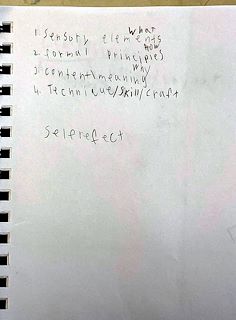 what
1. sensory elements
how
2 formal principles
why
3 content/meaning
4. Technique/skill/craft
selfreflect